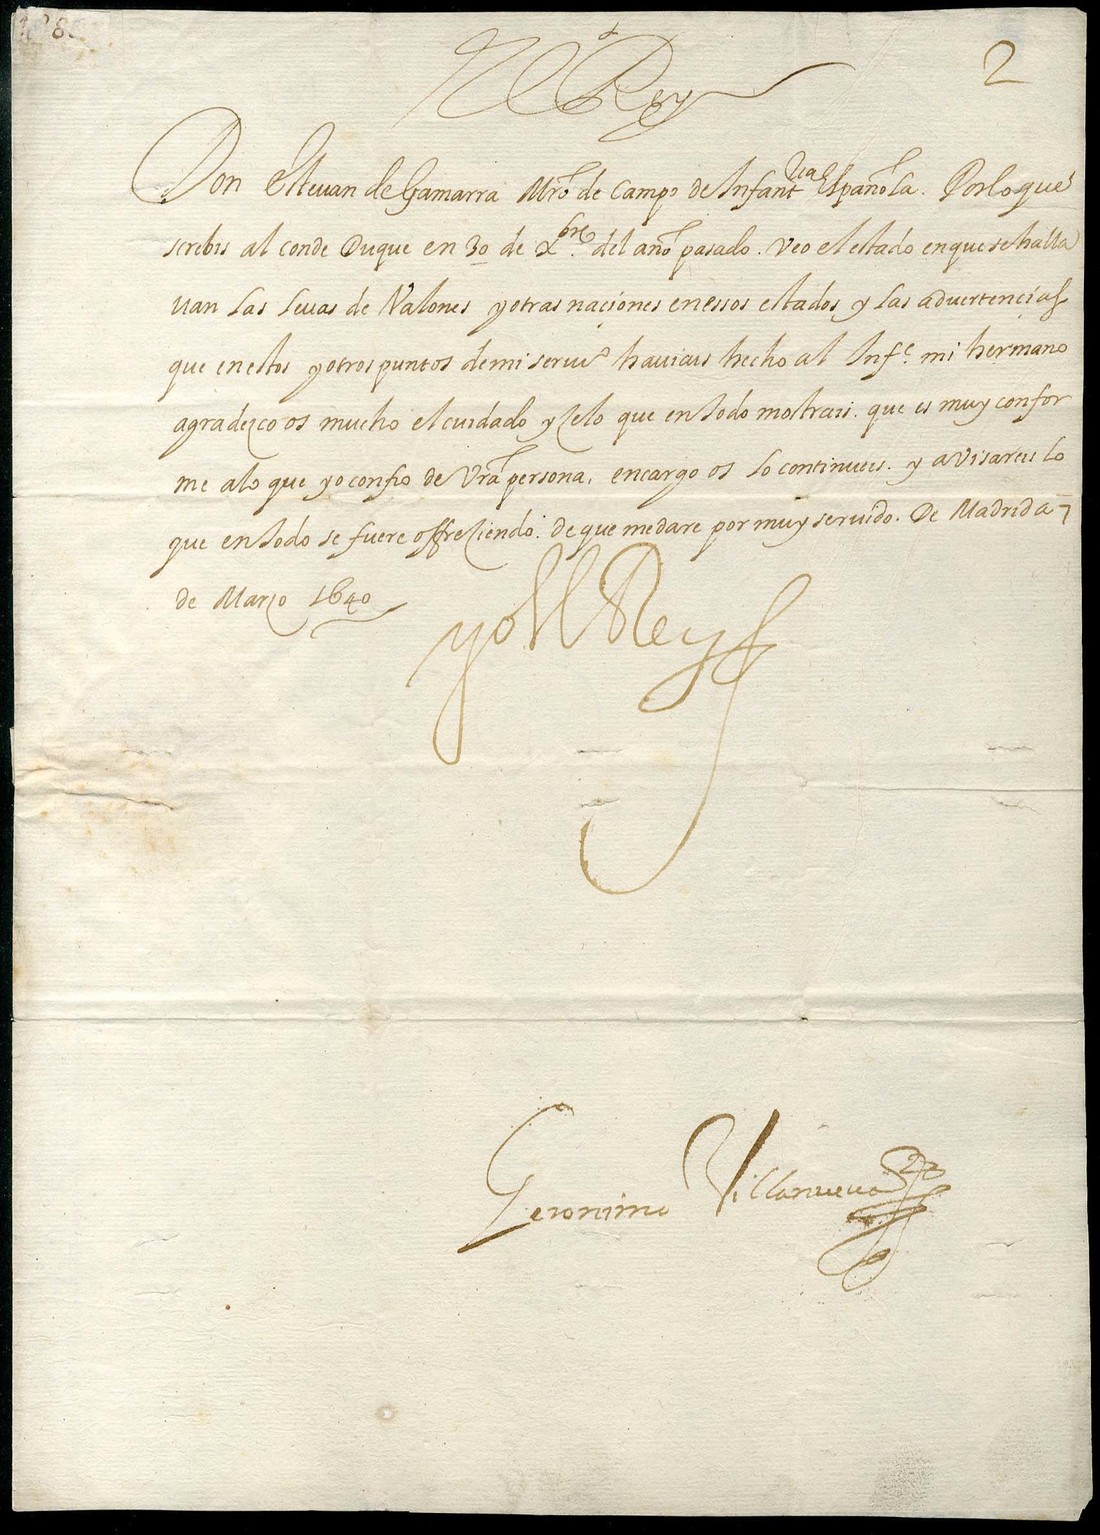 2
El Rey
Don Esteuan de Gamarra Mro de Campo de Infantria Española. Por lo que
screbis al conde Duque en 30 de Xbre del año pasado. Veo el estado en que se halla
uan las leuas de Valones y otras naciones en essos estados y las aduertencias
que en estos y otros puntos de mi seruo hauiais hecho al Infe. mi hermano
agradezco os mucho el cuidado y zelo que en todo mostrais. que es muy confor
me a lo que yo confio de Vra persona, encargo os lo continueis. y avisareis lo
que en todo se fuere offreziendo. de que me dare por muy seruido. De Madrid a 7
de Marzo 1640
yo el Rey
Geronimo Villanueua